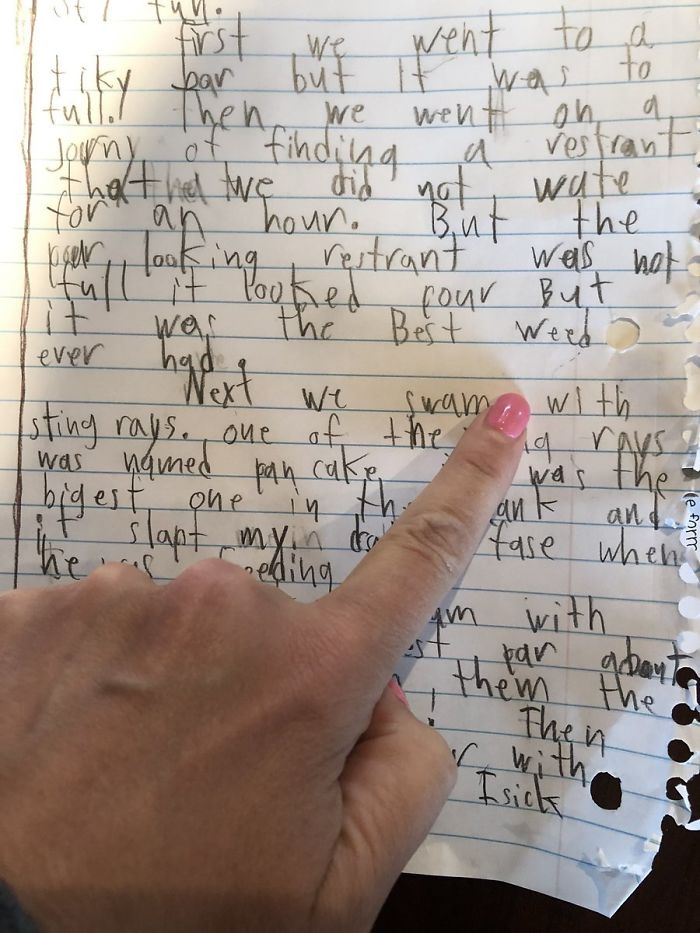 fun.
first we went to a
tiky par but it was to
full. Then we went on a
jorny of finding a restrant
that we did not wate
for an hour. But the
poor looking restrant was not
full it looked pour But
it was the Best weed
ever had.
Next we swam with
sting rays. one of the rays
was named pan cake was the
bigest one in the and
it slapt my in fase when
he was feeding
with
par about
them the
! Then
with
I sick
e form